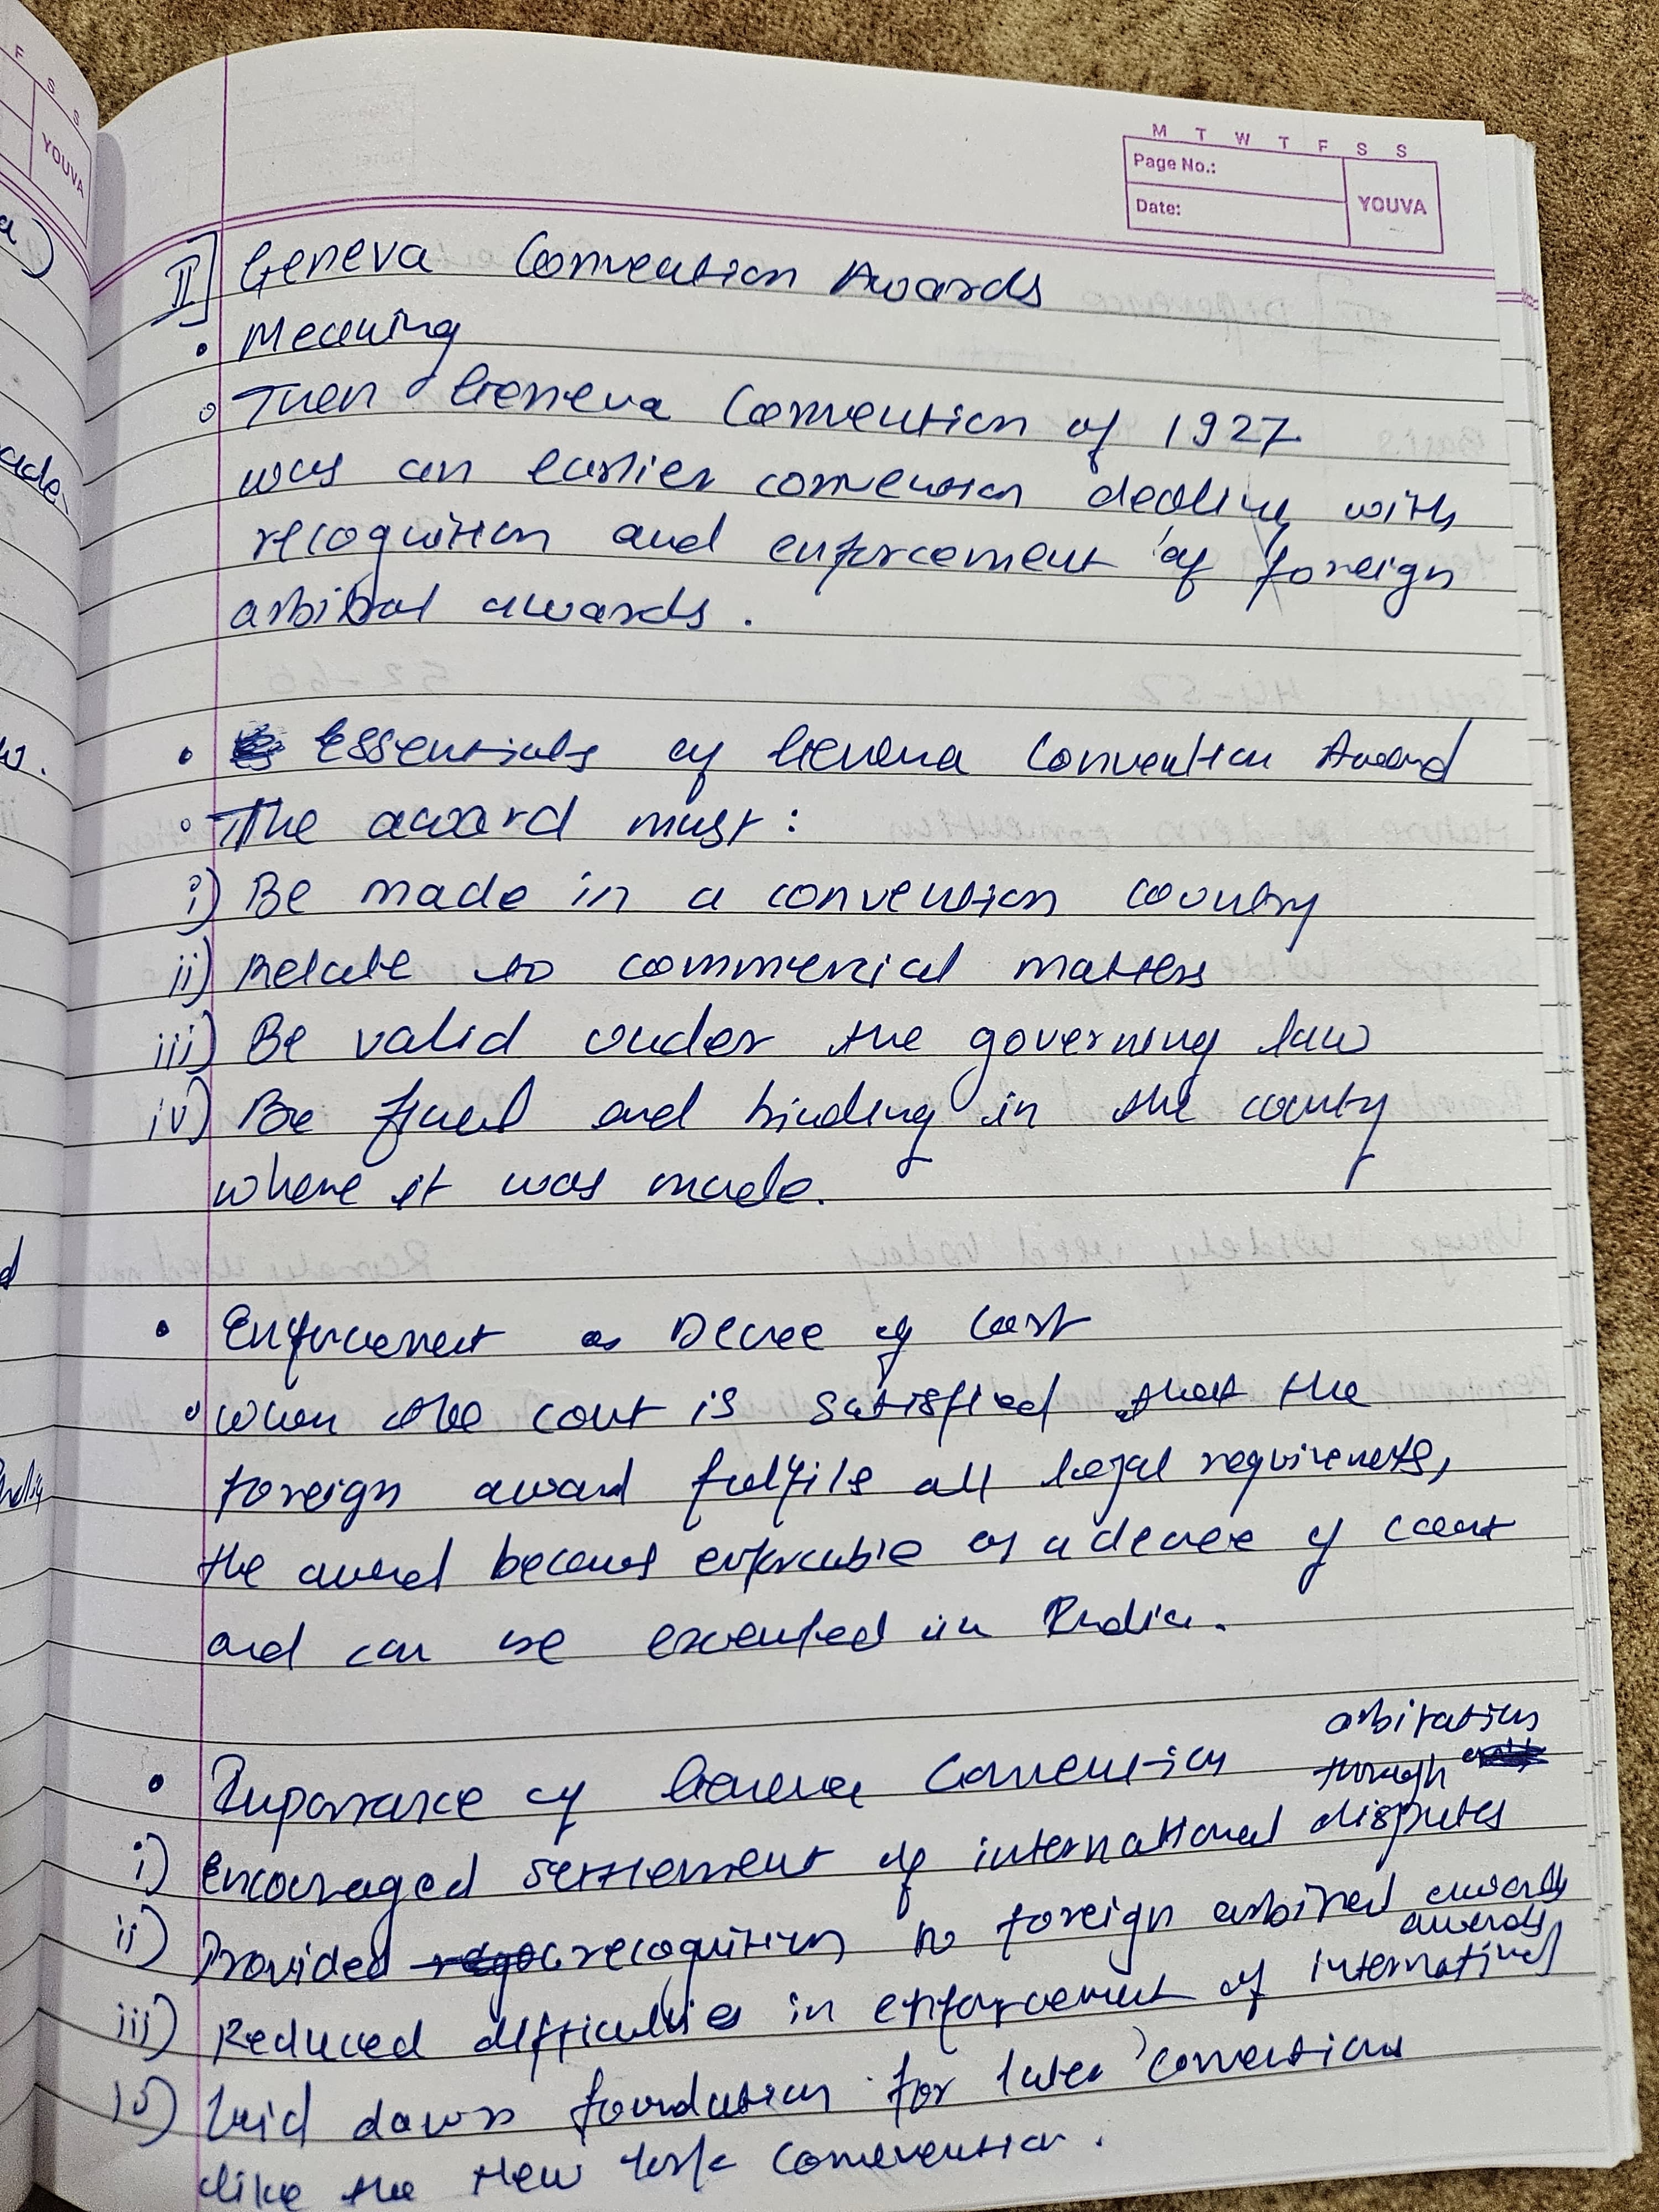 F S S
YOUVA
M T W T F S S
Page No.:
Date:
YOUVA
II] Geneva Convention Awards
• Meaning
◦ Then Geneva Convention of 1927
was an earlier convention dealing with
recognition and enforcement of foreign
arbitral awards.
• Essentials of Geneva Convention Award
◦ The award must:
i) Be made in a convention country
ii) Relate to commercial matters
iii) Be valid under the governing law
iv) Be final and binding in the county
where it was made.
• Enforcement as Decree of Cort
◦ When the cout is satisfied that the
foreign award fulfils all legal requirements,
the award becomes enforcable as a decree of court
and can be executed in India.
• Imporrance of Geneva Convention
i) Encouraged settlement of international disputes
through arbitration
ii) Provided recognition to foreign arbitral awards
iii) Reduced difficulties in enforcement of international
awards
iv) Laid down foundation for later conventions
like the New York Convention.